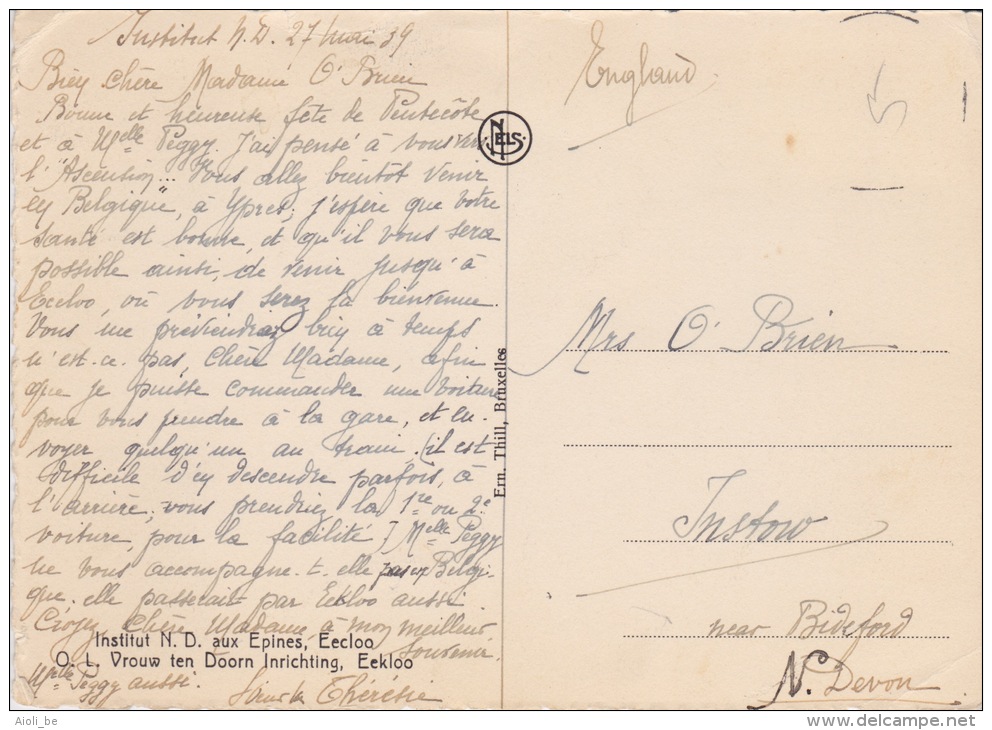 Institut N.D. 27 mai 39
Bien chère Madame O'Brien
Bonne et heureuse fête de Pentecôte
et à Melle Peggy. J'ai pensé à vous vers
l'"Ascension... Vous allez bientôt venir
en Belgique", à Ypres; j'espère que votre
santé est bonne, et qu'il vous sera
possible ainsi, de venir jusqu'à
Eecloo, où vous serez la bienvenue.
Vous me préviendriez bien à temps
n'est-ce pas, Chère Madame, afin
que je puisse commander une voiture
pour vous prendre à la gare, et en-
voyer quelqu'un au train. (il est
difficile d'en descendre parfois, à
l'arrière; vous prendriez la 1re ou 2e
voiture, pour la facilité) Melle Peggy
ne vous accompagne-t-elle pas en Belgi-
que. elle passerait par Eecloo aussi.
Croyez, Chère Madame, à mon meilleur
souvenir.
Melle Peggy aussi.
Thérésie
Institut N. D. aux Epines, Eecloo
O. L. Vrouw ten Doorn Inrichting, Eekloo
NELS
Ern. Thill, Bruxelles
England
Mrs O'Brien
Instow
near Bideford
N. Devon
Aioli_be
www.delcampe.net